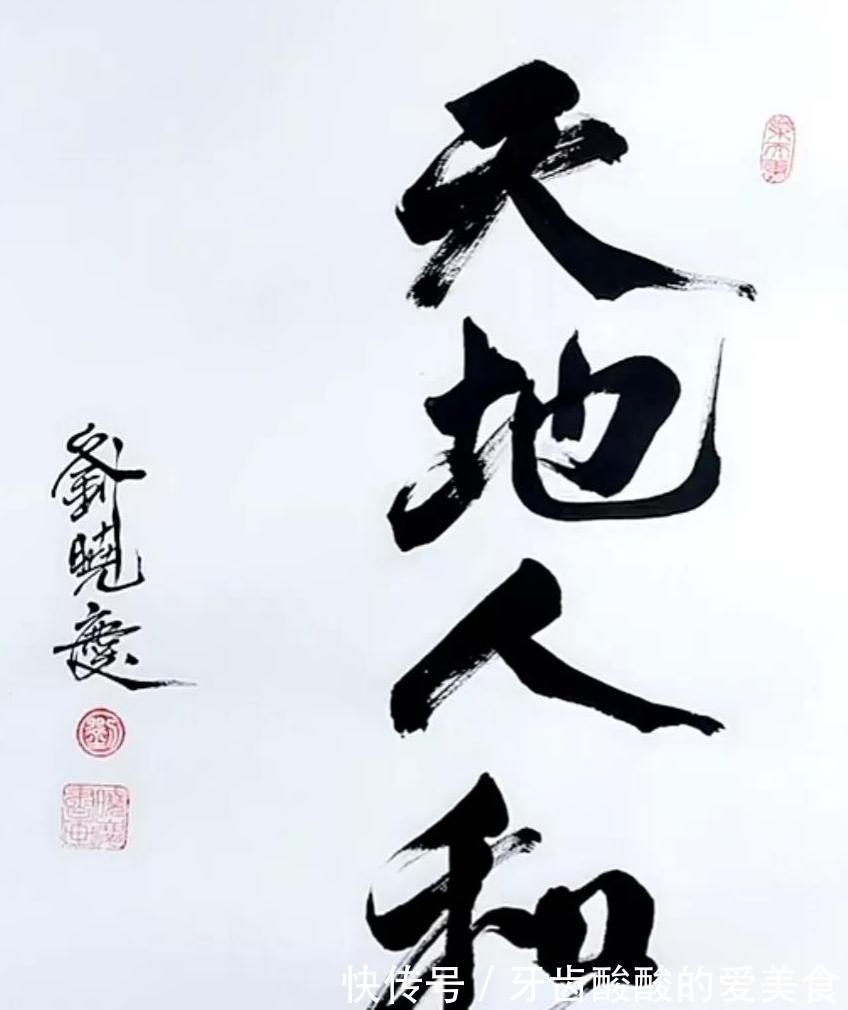 天地人和
劉曉慶
劉
快传号/牙齿酸酸的爱美食